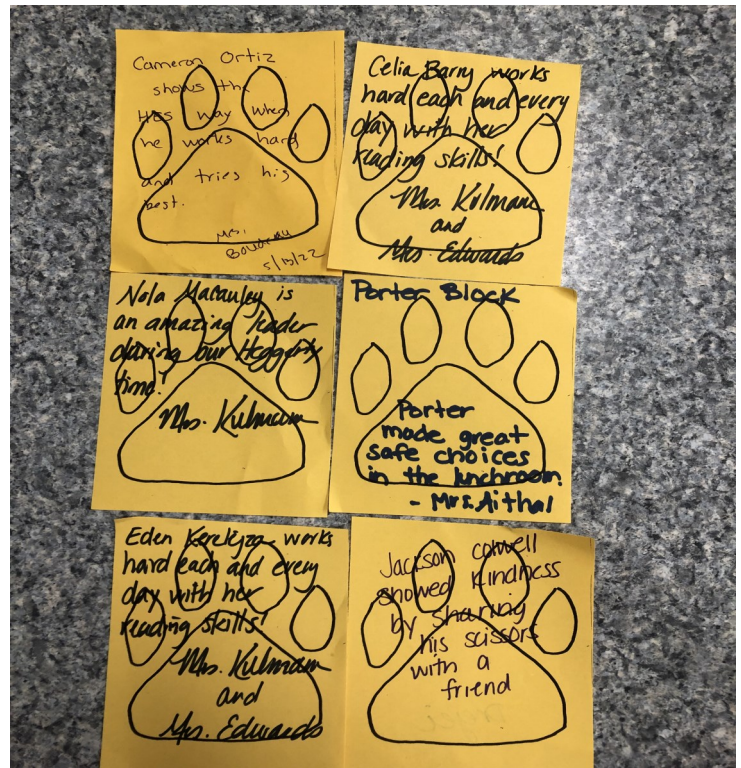 Cameron Ortiz
shows the
HES way when
he works hard
and tries his
best.
Mrs.
5/13/22
Celia Barry works
hard each and every
day with her
reading skills!
Mrs. Kulmann
and
Mrs. Edwards
Nola Macauley is
an amazing leader
during our Heggerty
time!
Mrs. Kulmann
Porter Block
Porter
made great
safe choices
in the lunchroom
- Mrs. Aithal
Eden works
hard each and every
day with her
reading skills!
Mrs. Kulmann
and
Mrs. Edwards
Jackson Colwell
showed kindness
by sharing
his scissors
with a
friend